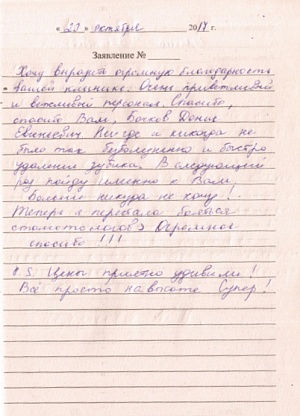 « 23 » октября 2017 г.
Заявление №
Хочу выразить огромную благодарность
вашей клинике. Очень приветливый
и вежливый персонал. Спасибо,
спасибо Вам, Бочков Денис
Евгеньевич Нигде и никогда не
было так безболезненно и быстро
удаления зубика. В следующий
раз пойду именно к Вам
больше никуда не хочу!
Теперь я перестала бояться
стоматологов) Огромное
спасибо!!!
P.S. Цены приятно удивили!
Всё просто на высоте Супер!